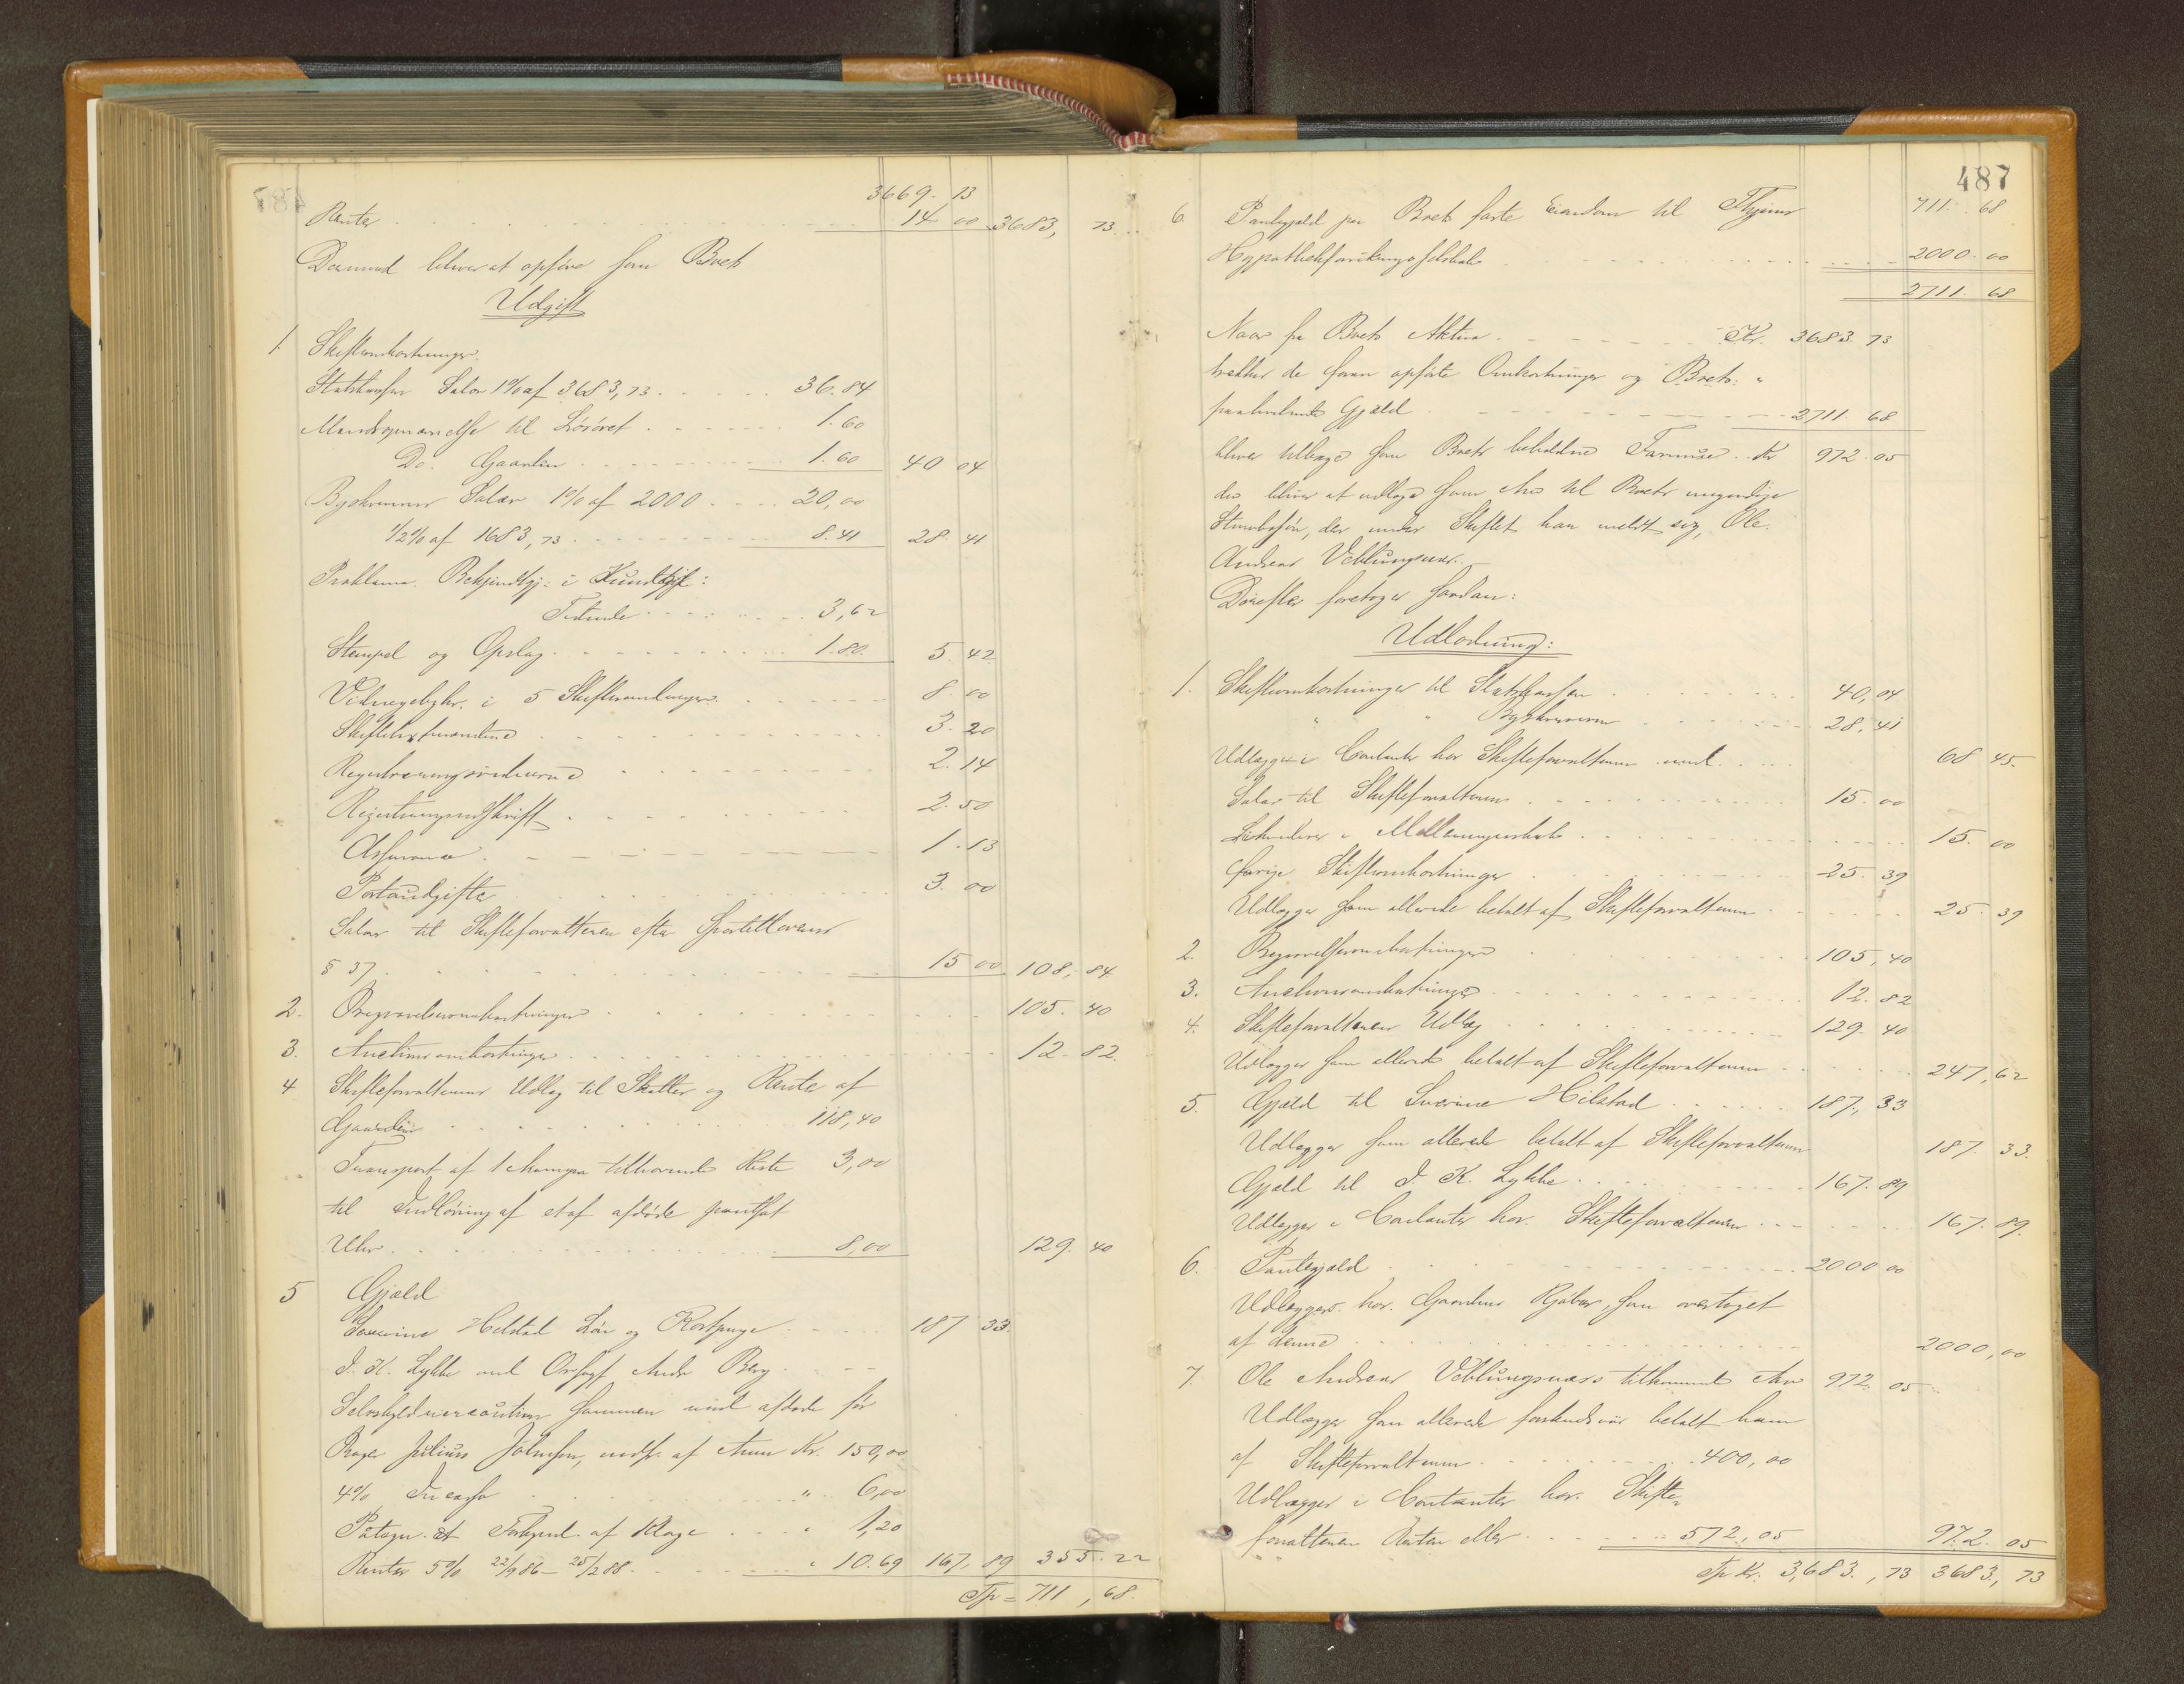 3669. 73
Renter 14 00 3683, 73
Dermed bliver at opføre som Boets
Udgift
1. Skifteomkostninger.
Statskassen Salær 1% af 3683,73 36.84
Mandsopnævnelse til Løsøret 1.60
Do. Gaarden 1.60 40 04
Byskriveren Salær 1% af 2000 20,00
1/2% af 1683,73 8.41 28.41
Proklama. Bekjendtgj. i Kundgj.:
Tidende 3,62
Stempel og Opslag 1.80. 5.42
Vidnegebyhr. i 5 Skiftesamlinger 8.00
3.20
Registreringsvidnerne 2.14
Registreringsudskrift 2.50
Assurance 1.13
Portoudgifter 3.00
Salær til Skifteforvalteren efter Sportellovens
§ 37. 15 00 108, 84
2. Begravelsesomkostninger 105. 40
3. Auctionsomkostninger 12. 82
4 Skifteforvalterens Udlæg til Skatter og Rente af
Gaarden 118,40
Transport af 1 tilhørende Kiste 3,00
til Indløsning af et af afdøde pantsat
Uhr 8,00 129. 40
5 Gjæld
Severine Hilstad Løn og Kostpenge 187 33.
I. K. Lykke ved Ovrsagf. Andr Berg
Selvskyldnercaution sammen med afdøde for
Julius Johnsen, Kr. 150,00
4% Incasso " 6,00
Påtegn. et Forkynd. af Klage " 1,20
Renter 5% 22/9 86 – 25/2 88 " 10.69 167,89 355.22
Tp = 711,68.
487
711. 68
6. Pantegjæld paa Boets faste Eiendom til Thjems
Hypothekforsikringsselskab 2000.00
2711.68
Naar fra Boets Aktiva Kr. 3683.73
trækkes de foran opførte Omkostninger og Boets
paahvilende Gjæld 2711.68
bliver tilbage som Boets beholdne Formue Kr 972.05
der bliver at udlægge som Arv til Boets myndige
der under Skiftet har meldt sig, Ole
Andreas Veblungsnæs.
Derefter foretoges saadan:
Udlodning:
1. Skifteomkostninger til Statskassen 40,04
" " Byskriveren 28,41
Udlægges i Contanter hos Skifteforvalteren med 68 45.
Salær til Skifteforvalteren 15.00
Likvideres i Mellemregnskab 15.00
Øvrige Skifteomkostninger 25.39
Udlægges som allerede betalt af Skifteforvalteren 25.39
2. Begravelsesomkostninger 105,40
3. Auctionsomkostninger 12.82
4. Skifteforvalterens Udlæg 129.40
Udlægges som allerede betalt af Skifteforvalteren 247,62
5. Gjæld til Severine Hilstad 187,33
Udlægges som allerede betalt af Skifteforvalteren 187.33.
Gjæld til I. K. Lykke 167.89
Udlægges i Contanter hos Skifteforvalteren 167.89.
6. Pantegjæld 2000 00
Udlægges hos Gaardens Kjøber, som overtaget
af denne 2000,00
7. Ole Andreas Veblungsnæs tilkommende Arv 972.05
Udlægges som allerede forskudsvis betalt ham
af Skifteforvalteren 400,00
Udlægges i Contanter hos Skifte-
forvalteren Resten eller 572,05 972.05
Tp Kr. 3,683.,73 3683.,73